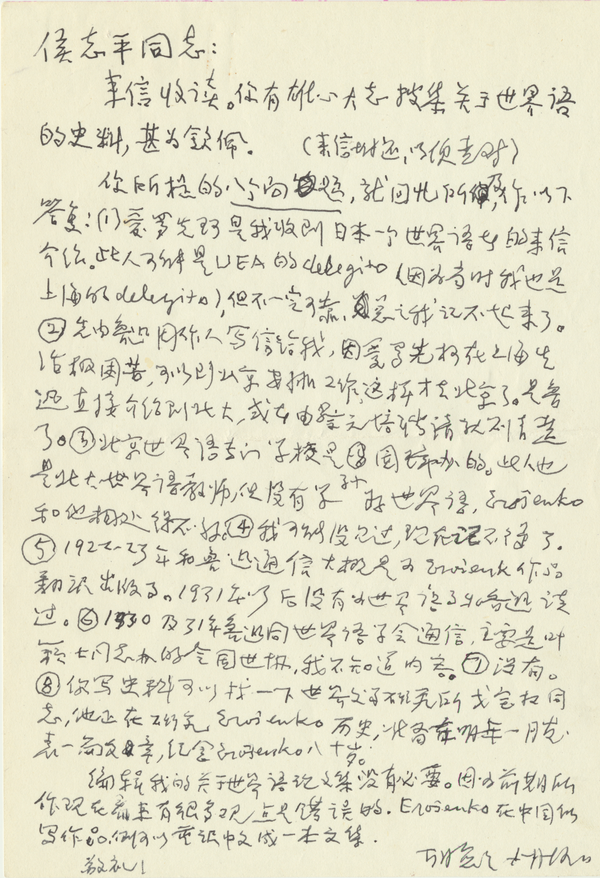 侯志平同志：
来信收读。你有雄心大志搜集关于世界语
的史料，甚为钦佩。（来信附还，以便查对）
你所提的八个问题，就回忆所及，作以下
答复：(1)爱罗先珂是我收到日本一个世界语者的来信
介绍。此人可能是UEA的delegito（因为当时我也是
上海的delegito），但不一定可靠，总之我记不起来了。
②先由鲁迅 周作人写信给我，因爱罗先珂在上海生
活极困苦，可以到北京安排工作，这样才去北京了。是鲁
迅直接介绍到北大，或由蔡元培聘请就不清楚
了。③北京世界语专门学校是 国 办的。此人也
是北大世界语教师，但没有学好世界语，Erosenko
和他相处得不好。④我可能没 过，现在记不得了。
⑤1922-23年和鲁迅通信大概是为Erosenk作品
翻译出版事。1931年以后没有为世界语事和鲁迅谈
过。⑥1930及31年鲁迅同世界语学会通信，主要是叶
籁士同志办的全国世协，我不知道内容。⑦没有。
⑧你写史料可以找一下世界文学研究所戈宝权同
志，他正在研究Erosenko历史，准备在明年一月发
表一篇文章，纪念Erosenko八十岁。
编辑我的关于世界语论文集没有必要。因为前期所
作现在看来有很多观点是错误的。Erosenko在中国所
写作品，倒可以重译中文成一本文集。
敬礼！
胡愈之